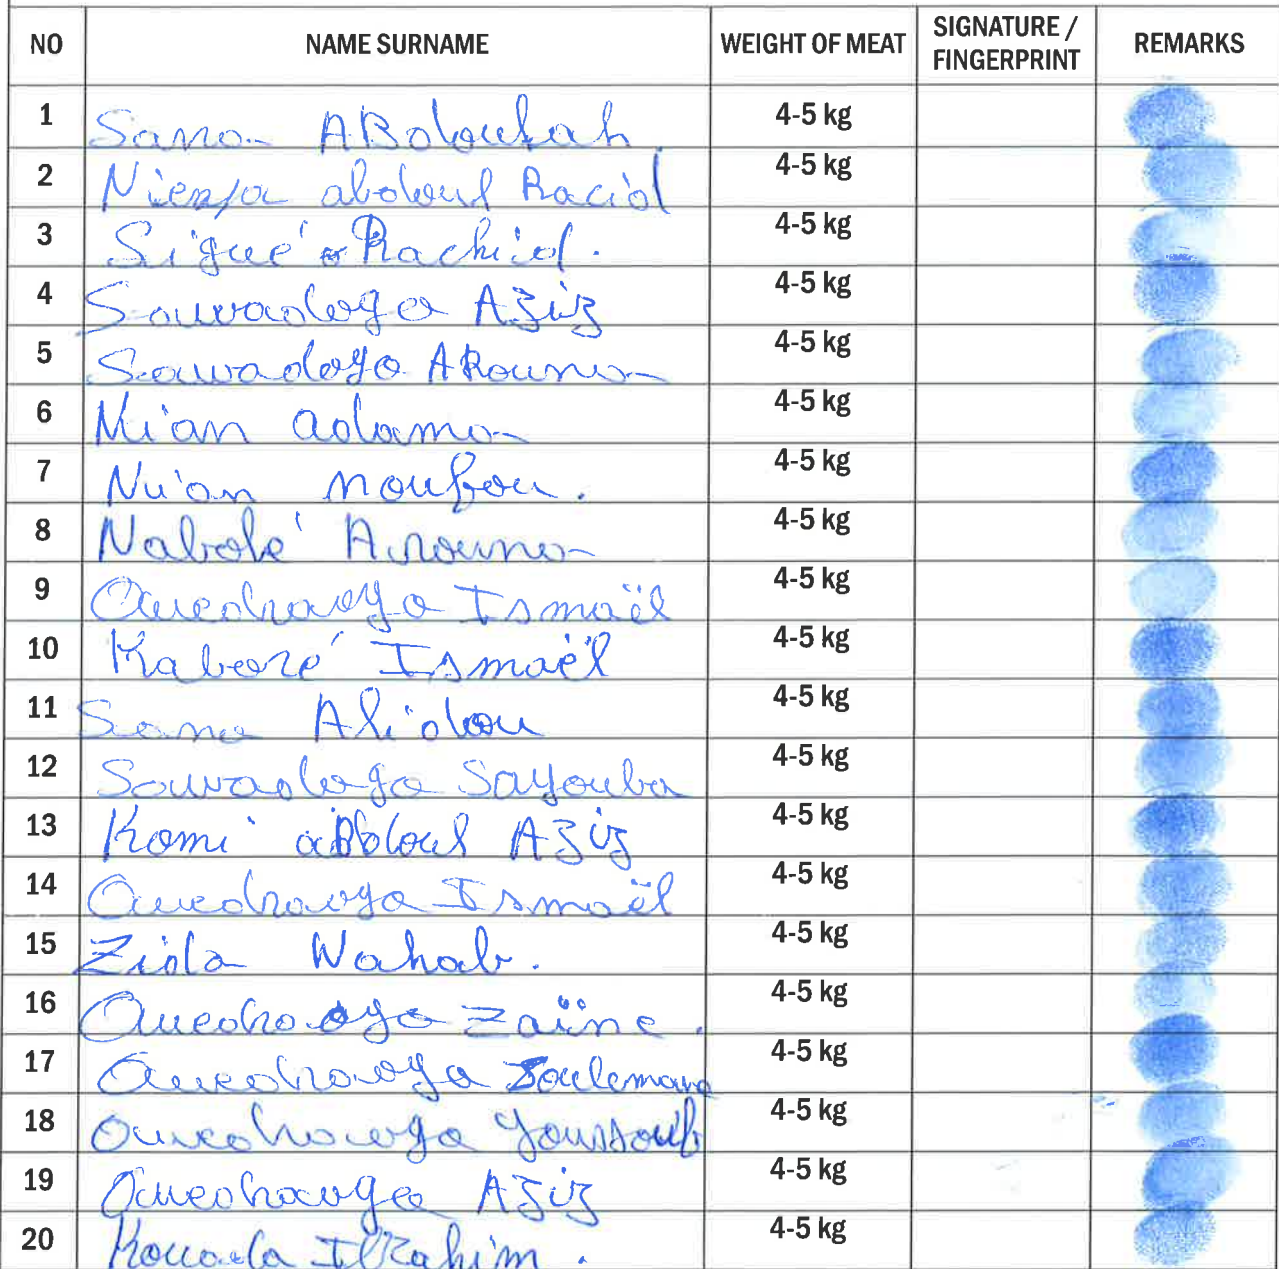 NO NAME SURNAME WEIGHT OF MEAT SIGNATURE / FINGERPRINT REMARKS
1 Sana ABdoulah 4-5 kg
2 abdoul Racid 4-5 kg
3 Sigué Rachid. 4-5 kg
4 Sawadogo Aziz 4-5 kg
5 Sawadogo ARouna 4-5 kg
6 Nian adama 4-5 kg
7 Nian noufou. 4-5 kg
8 Nabolé Arouna 4-5 kg
9 Ouedraogo Ismaël 4-5 kg
10 Kaboré Ismaël 4-5 kg
11 Sana Alidou 4-5 kg
12 Sawadogo Sayouba 4-5 kg
13 Komi abdoul Aziz 4-5 kg
14 Ouedraogo Ismaël 4-5 kg
15 Zida Wahab. 4-5 kg
16 Ouedraogo Zaïne. 4-5 kg
17 Ouedraogo Soulemana 4-5 kg
18 Ouedraogo Youssouf 4-5 kg
19 Ouedraogo Aziz 4-5 kg
20 Kouada IbRahim. 4-5 kg